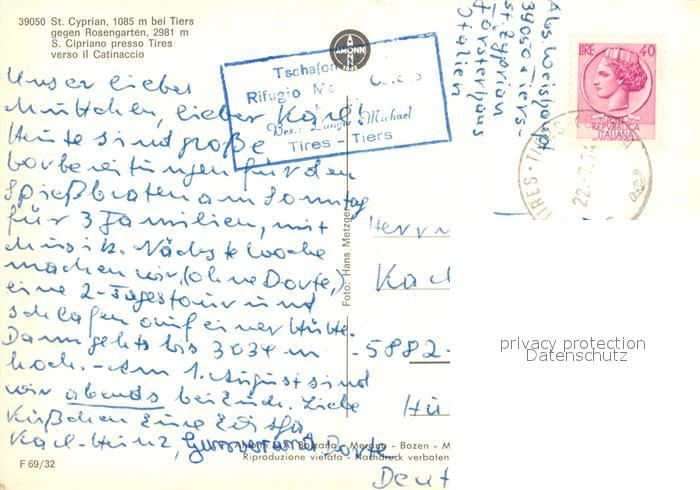 39050 St. Cyprian, 1085 m bei Tiers
gegen Rosengarten, 2981 m
S. Cipriano presso Tires
verso il Catinaccio
Unser liebes
Muttchen, lieber Karl!
Heute sind große
Vorbereitungen für den
Spießbraten am Sonntag
für 3 Familien, mit
Musik. Nächste Woche
machen wir (ohne Dorte)
eine 2-Tagestour und
schlafen auf einer Hütte.
Dann gehts bis 3034 m
hoch. - Am 1. August sind
wir abends bei Euch. Liebe
Küßchen Eure
Karl-Heinz, und Dorte
F 69/32
AMONN
Rifugio
Bes.: Michael
Tires - Tiers
Abs. Weishaupt
39050 Tiers-
St. Zyprian
Försterhaus
Italien
LIRE 40
REPVBBLICA
ITALIANA
TIRES
22.7.
Foto: Hans Metzger
Herrn
Karl
5882-
Deut
Bolzano - Merano - Bozen - M
Riproduzione vietata - Nachdruck verboten
privacy protection
Datenschutz